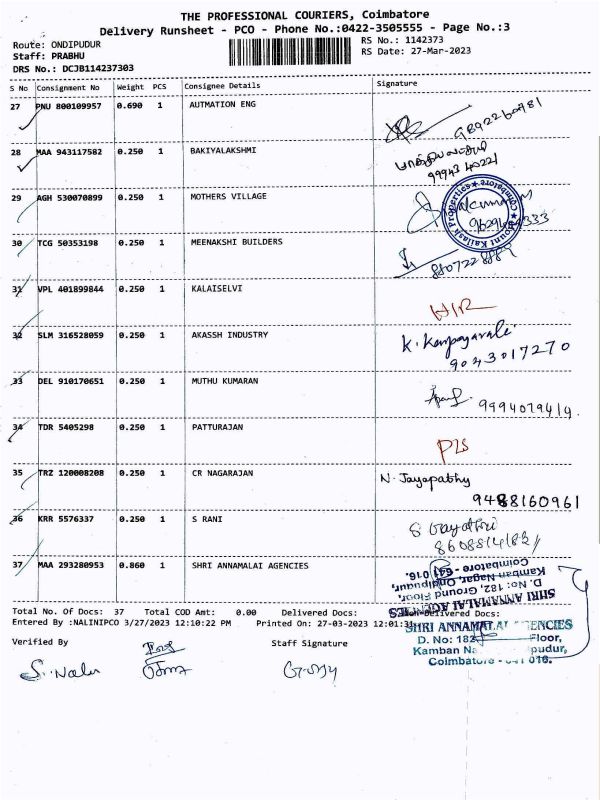 THE PROFESSIONAL COURIERS, Coimbatore
Delivery Runsheet - PCO - Phone No.:0422-3505555 - Page No.:3
Route: ONDIPUDUR
RS No.: 1142373
Staff: PRABHU
RS Date: 27-Mar-2023
DRS No.: DCJB114237303
S No Consignment No Weight PCS Consignee Details Signature
27 PNU 800109957 0.690 1 AUTMATION ENG 9892260981
28 MAA 943117582 0.250 1 BAKIYALAKSHMI
99943 40221
29 AGH 530070899 0.250 1 MOTHERS VILLAGE
Mount Kailash Properties ★ Coimbatore ★
30 TCG 50353198 0.250 1 MEENAKSHI BUILDERS
8807228889
31 VPL 401899844 0.250 1 KALAISELVI
H/R
32 SLM 316528059 0.250 1 AKASSH INDUSTRY
K.
9043017270
33 DEL 910170651 0.250 1 MUTHU KUMARAN
9994079414.
34 TDR 5405298 0.250 1 PATTURAJAN
P2S
35 TRZ 120008208 0.250 1 CR NAGARAJAN N. Jayapathy
9488160961
36 KRR 5576337 0.250 1 S RANI S Gayathri
37 MAA 293280953 0.860 1 SHRI ANNAMALAI AGENCIES
SHRI ANNAMALAI AGENCIES
D. No: 182, Ground Floor,
Kamban Nagar, Ondipudur,
Coimbatore - 641 016.
Total No. Of Docs: 37 Total COD Amt: 0.00 Delivered Docs: Non-Delivered Docs:
Entered By :NALINIPCO 3/27/2023 12:10:22 PM Printed On: 27-03-2023 12:01:31
SHRI ANNAMALAI AGENCIES
D. No: 182, Floor,
Kamban Na pudur,
Coimbatore - 641 016.
Verified By Staff Signature